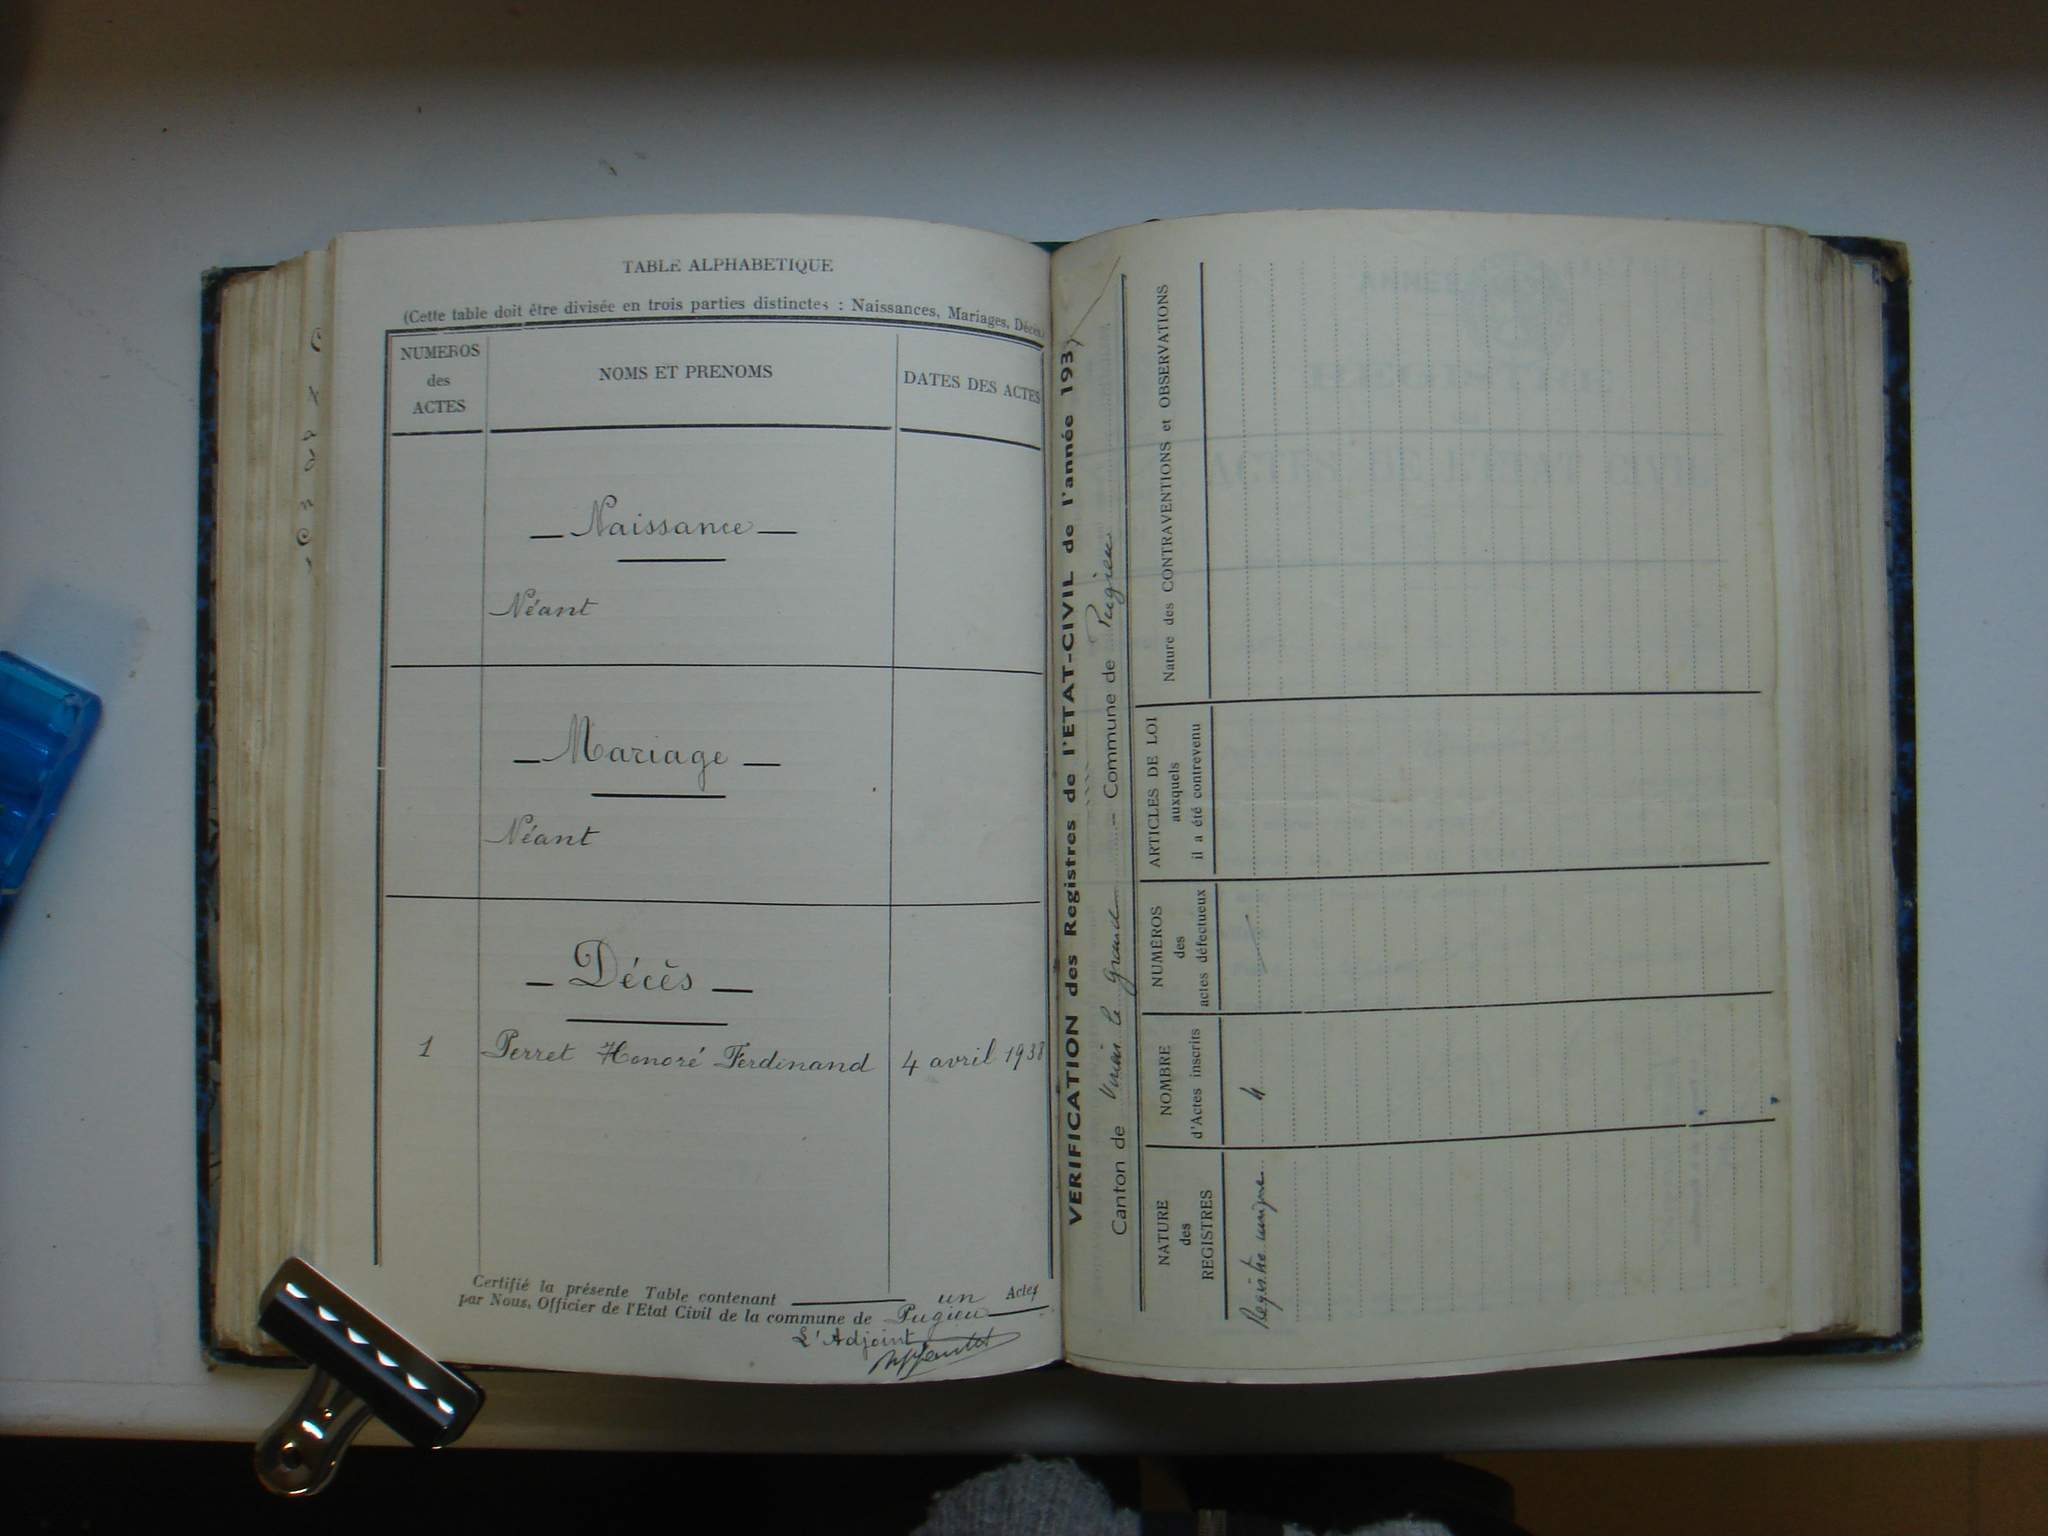 TABLE ALPHABETIQUE
(Cette table doit être divisée en trois parties distinctes : Naissances, Mariages, Décès)
NUMEROS
des
ACTES
NOMS ET PRENOMS
DATES DES ACTES
Naissance
Néant
Mariage
Néant
Décès
1 Perret Honoré Ferdinand 4 avril 1938
Certifié la présente Table contenant un Actes
par Nous, Officier de l'Etat Civil de la commune de Pugieu
L'Adjoint
VERIFICATION des Registres de l'ETAT-CIVIL de l'année 193
Canton de Virieu le Grand – Commune de Pugieu
NATURE
des
REGISTRES
NOMBRE
d'Actes inscrits
NUMÉROS
des
actes défectueux
ARTICLES DE LOI
auxquels
il a été contrevenu
Nature des CONTRAVENTIONS et OBSERVATIONS
Registre unique 4